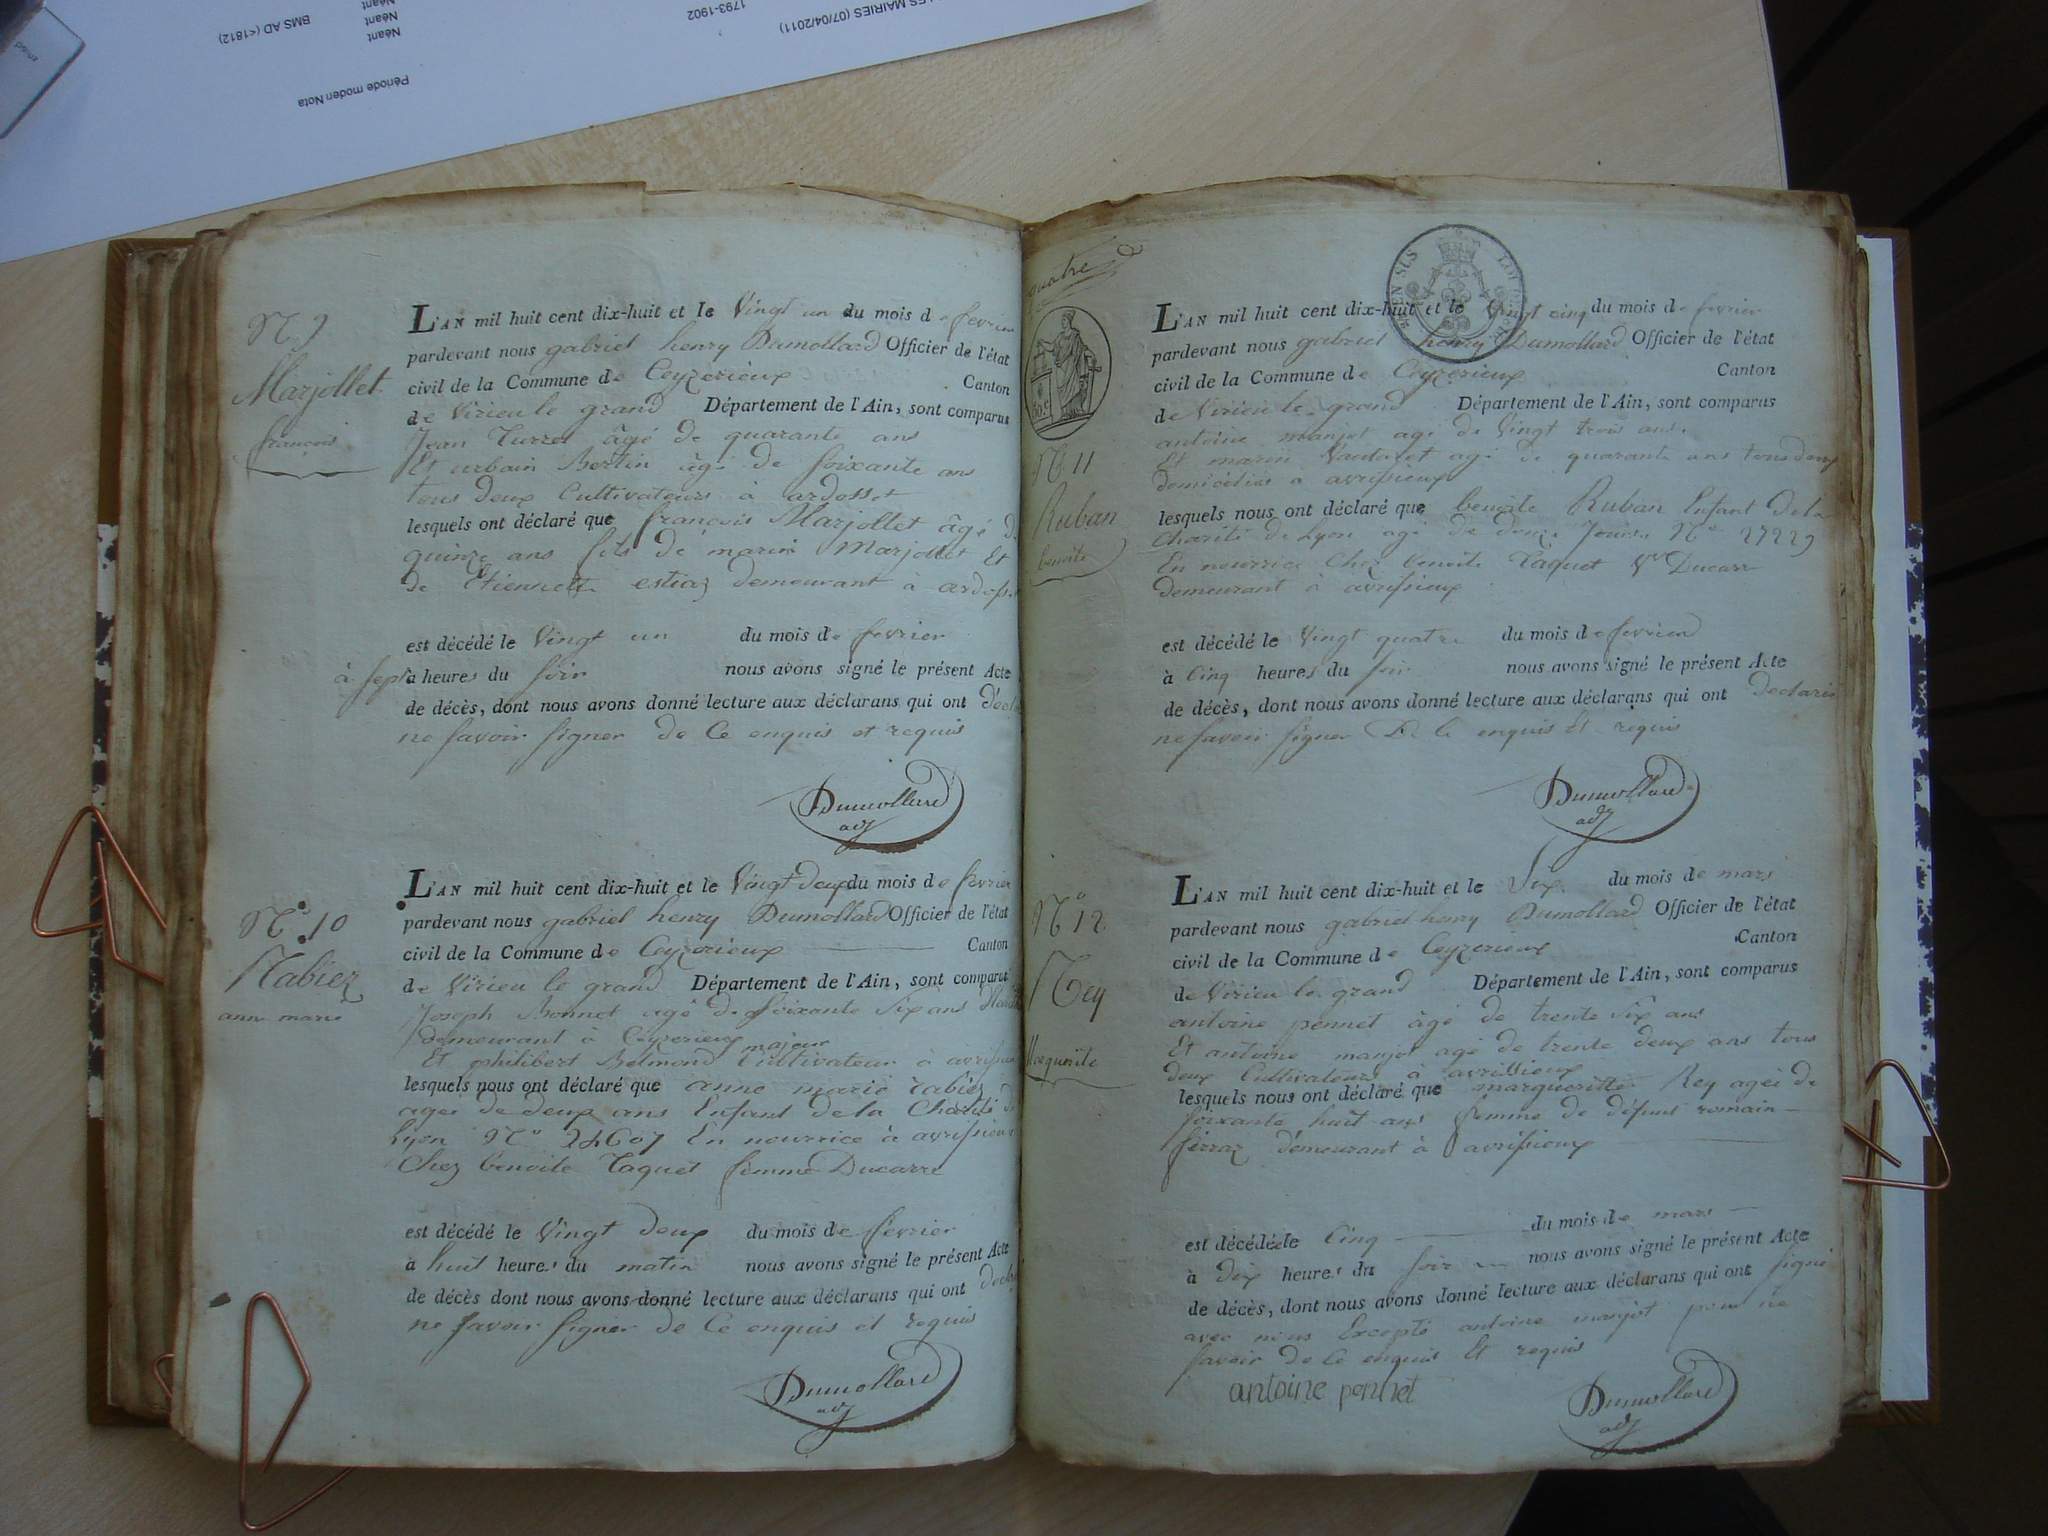 LES MAIRIES (07/04/2011)
1793-1902
BMS AD (<1812)
Néant
Néant
Néant
Période moder Nota
N 9
Marjollet
françois
L'AN mil huit cent dix-huit et le Vingt un du mois de fevrier
pardevant nous gabriel henry Dumollard Officier de l'état
civil de la Commune de Ceyzerieux Canton
de Virieu le grand Département de l'Ain, sont comparus
Jean Turrel âgé de quarante ans
Et urbain Bertin âgé de soixante ans
tous deux Cultivateurs à ardosset
lesquels ont déclaré que françois Marjollet âgé d
quinze ans fils de marin Marjollet Et
de Etiennette estiaz demeurant à
est décédé le Vingt un du mois de fevrier
à sept à heures du soir nous avons signé le présent Acte
de décès, dont nous avons donné lecture aux déclarans qui ont
ne savoir signer de Ce enquis et requis
Dumollard
adj
N° 10
Rabiez
anne marie
L'AN mil huit cent dix-huit et le Vingt deux du mois de fevrier
pardevant nous gabriel henry Dumollard Officier de l'état
civil de la Commune de Ceyzerieux Canton
de Virieu le grand Département de l'Ain, sont comparus
Joseph Bonnet agé de soixante six ans
demeurant à Ceyzerieux majeur
Et philibert Belmond Cultivateur à
lesquels nous ont déclaré que anne marie rabiez
agée de deux ans Enfant de la Charité de
Lyon N° 24607 En nourrice à avrissieux
Chez benoite Taquet femme Ducarre
est décédé le Vingt deux du mois de fevrier
à huit heures du matin nous avons signé le présent Acte
de décès dont nous avons donné lecture aux déclarans qui ont
ne savoir signer de Ce enquis et requis
Dumollard
adj
quatre
50 c
N. 11
Ruban
benoite
L'AN mil huit cent dix-huit et le Vingt cinq du mois de fevrier
pardevant nous gabriel henry Dumollard Officier de l'état
civil de la Commune de Ceyzerieux Canton
de Virieu le grand Département de l'Ain, sont comparus
antoine manjot agé de Vingt trois ans.
Et marin agé de quarante ans tous deux
domiciliés a avrissieux
lesquels nous ont déclaré que benoite Ruban Enfant de la
Charité de Lyon agé de Jours N° 27229
En nourrice Chez benoite Taquet Ducarre
demeurant à avrissieux
est décédé le Vingt quatre du mois de fevrier
à Cinq heures du soir nous avons signé le présent Acte
de décès, dont nous avons donné lecture aux déclarans qui ont declaré
ne savoir signer De Ce enquis Et requis
Dumollard
adj
N° 12
Rey
L'AN mil huit cent dix-huit et le Six du mois de mars
pardevant nous gabriel henry Dumollard Officier de l'état
civil de la Commune de Ceyzerieux Canton
de Virieu le grand Département de l'Ain, sont comparus
antoine pennet âgé de trente six ans
Et antoine manjot agé de trente deux ans tous
deux Cultivateurs à avrissieux
lesquels nous ont déclaré que margueritte Rey agée de
soixante huit ans femme de défunt romain
ferraz demeurant à avrissieux
est décédée le Cinq du mois de mars
à dix heures du soir nous avons signé le présent Acte
de décès, dont nous avons donné lecture aux déclarans qui ont signé
avec nous Excepté antoine manjot pour ne
savoir de Ce enquis Et requis
antoine pennet
Dumollard
adj